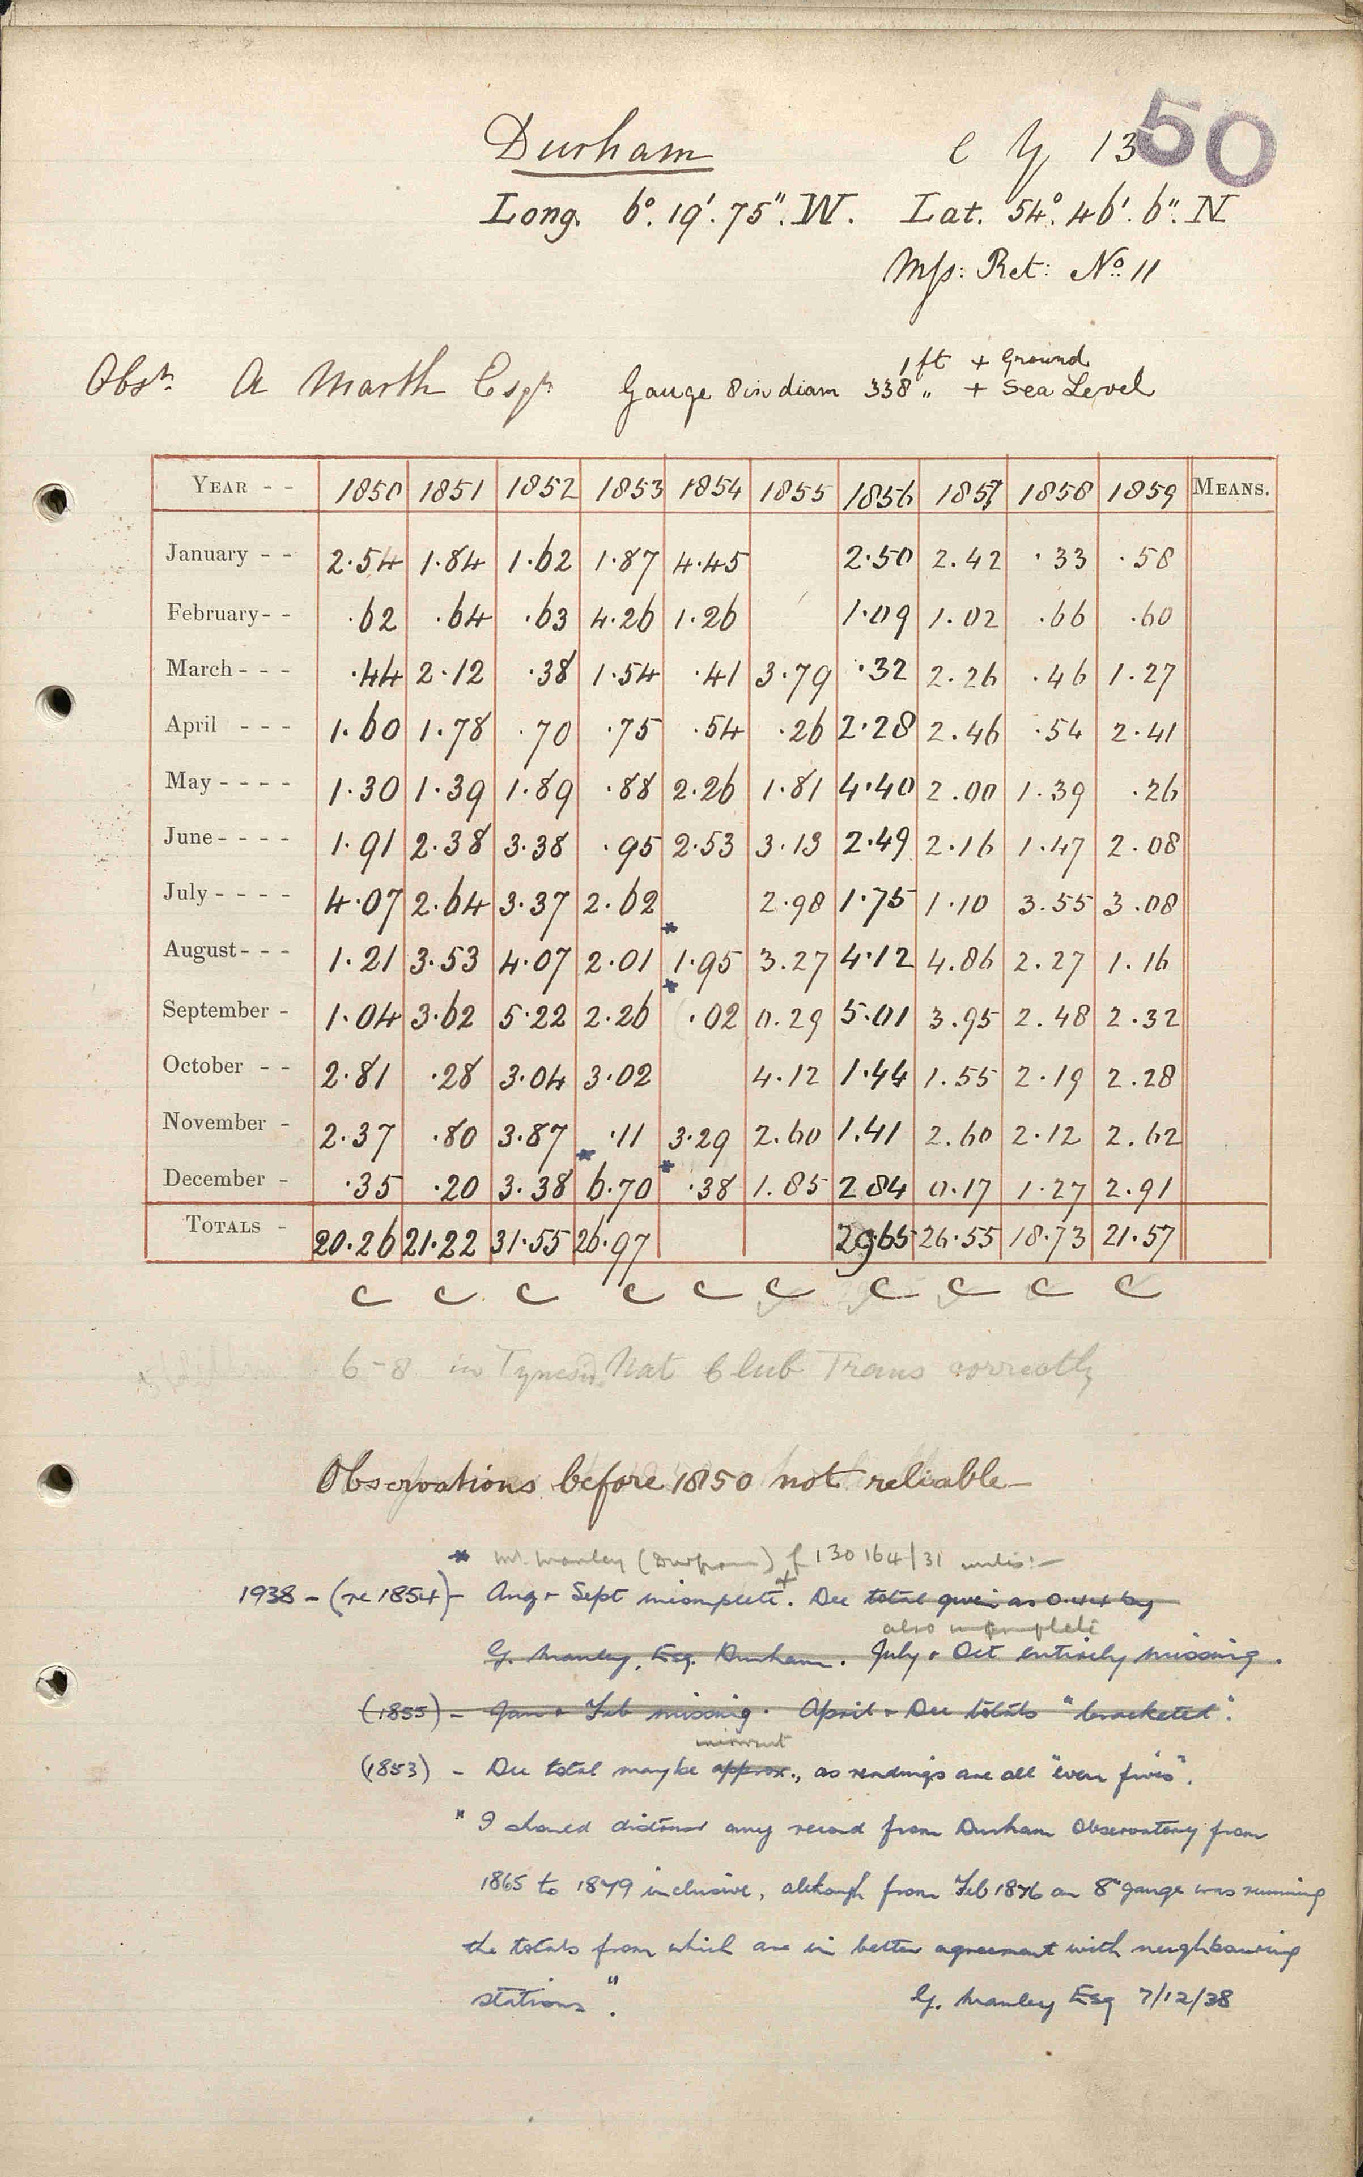 50
Durham e y 13
Long. 6°. 19'. 75". W. Lat. 54°. 46'. 6". N
Mss: Ret: No. 11
1 ft + Ground
Obsr. A Marth Esqr Gauge 8 in diam 338 " + Sea Level
YEAR - - 1850 1851 1852 1853 1854 1855 1856 1857 1858 1859 MEANS.
January - - 2.54 1.84 1.62 1.87 4.45 2.50 2.42 .33 .58
February - - .62 .64 .63 4.26 1.26 1.09 1.02 .66 .60
March - - - .44 2.12 .38 1.54 .41 3.79 .32 2.26 .46 1.27
April - - - 1.60 1.78 .70 .75 .54 .26 2.28 2.46 .54 2.41
May - - - - 1.30 1.39 1.89 .88 2.26 1.81 4.40 2.00 1.39 .26
June - - - - 1.91 2.38 3.38 .95 2.53 3.13 2.49 2.16 1.47 2.08
July - - - - 4.07 2.64 3.37 2.62 2.98 1.75 1.10 3.55 3.08
August - - - 1.21 3.53 4.07 2.01 * 1.95 3.27 4.12 4.86 2.27 1.16
September - 1.04 3.62 5.22 2.26 * .02 0.29 5.01 3.95 2.48 2.32
October - - 2.81 .28 3.04 3.02 4.12 1.44 1.55 2.19 2.28
November - 2.37 .80 3.87 .11 3.29 2.60 1.41 2.60 2.12 2.62
December - .35 .20 3.38 * 6.70 * .38 1.85 2.84 0.17 1.27 2.91
TOTALS - 20.26 21.22 31.55 26.97 29.65 26.55 18.73 21.57
C C C C C C C C C C
6-8 in Tyneside Nat Club Trans correctly
Observations before 1850 not reliable -
* Mr. Manley (Durham) f 130164/31 writes:-
1938 - (re 1854) - Aug + Sept incomplete. + Dec total given as 0.44 by
also incomplete
G. Manley, Esq. Durham. July + Oct entirely missing.
(1855) - Jan + Feb missing. April + Dec totals "bracketed".
incorrect
(1853) - Dec total maybe approx., as readings are all "even fives".
" I should distrust any record from Durham Observatory from
1865 to 1879 inclusive, although from Feb 1876 an 8" gauge was running
the totals from which are in better agreement with neighbouring
stations".
G. Manley Esq 7/12/38